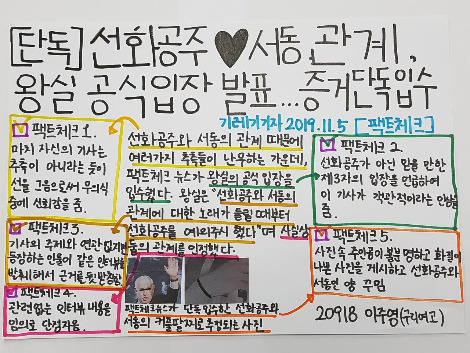 [단독] 선화공주 ♥ 서동 관계,
왕실 공식입장 발표...증거단독입수
기레기기자 2019.11.5 [팩트체크]
팩트체크 1.
마치 자신의 기사는
추측이 아니라는 듯이
선을 그음으로써 무의식
중에 신뢰감을 줌.
팩트체크3.
기사의 주제와 연관
등장하는 인물이 같은
근거를 뒷받침함
팩트체크4.
관련없는 인터뷰 내용을
임의로 단정지음.
선화공주와 서동의 관계 때문에
여러가지 추측들이 난무하는 가운데,
팩트체크 뉴스가 왕실의 공식 입장을
입수했다. 왕실은 "선화공주와 서동의
관계에 대한 노래가 흘릴 때부터
선화공주를 예의주시 했다"며 사실상
둘의 관계를 인정했다.
팩트체크뉴스가 단독 입수한 선화공주와
서동의 커플팔찌로 추정되는 사진
팩트체크 2.
선화공주가 아닌 말을 한
제3자의 입장을 언급하여
이 기사가 객관적이라는 인상을
줌.
팩트체크 5.
사진 속 주인공이 불분명하고 화질이
나쁜 사진을 제시하고 선화공주와
서동인 양 꾸밈
20918 이주영(구리여고)